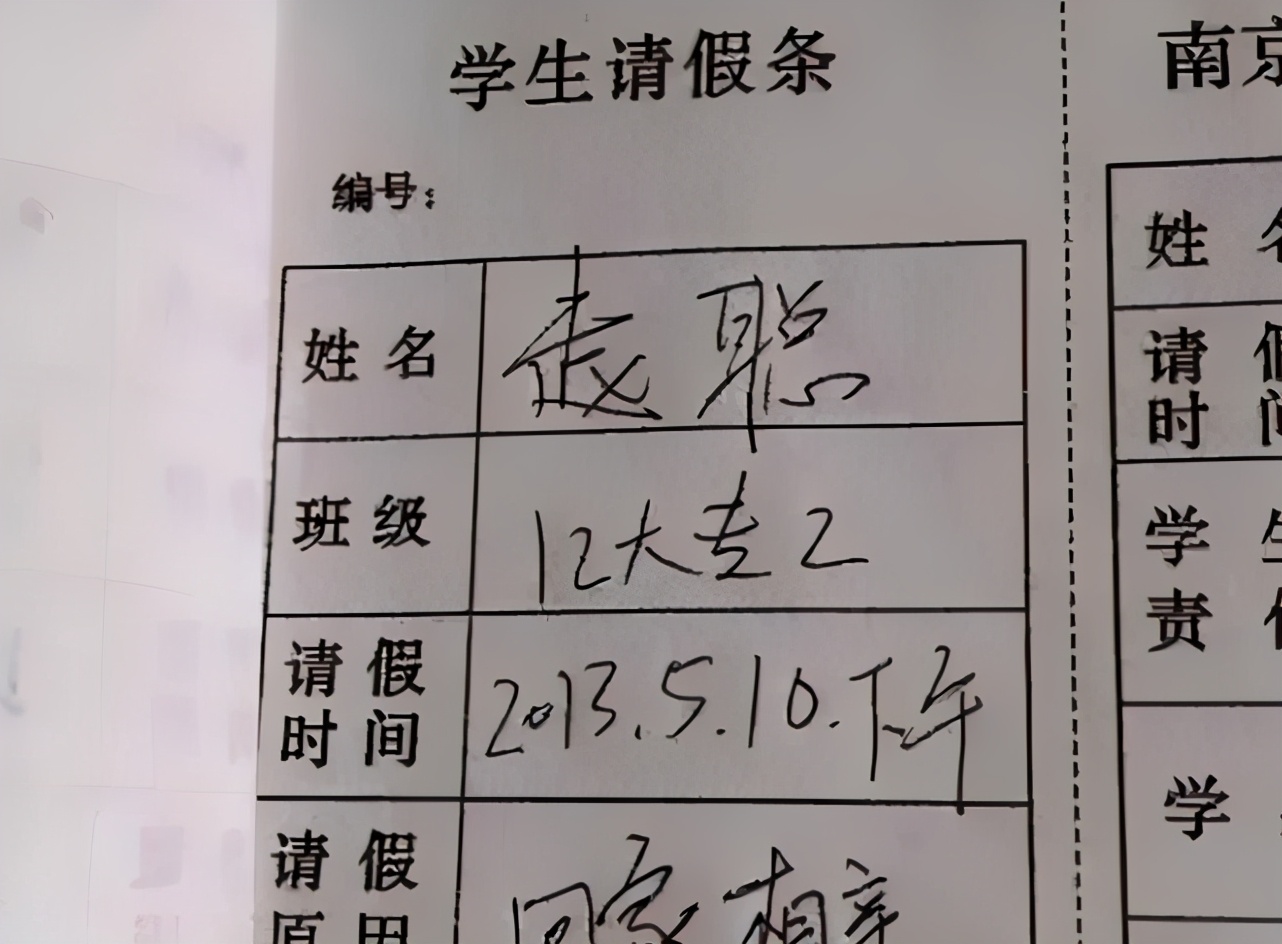 学生请假条
南京
编号:
姓名
聪
班级
12大专2
请假时间
2013.5.10.下午
请假原因
回家相亲
姓名
请假时间
学生
责
学